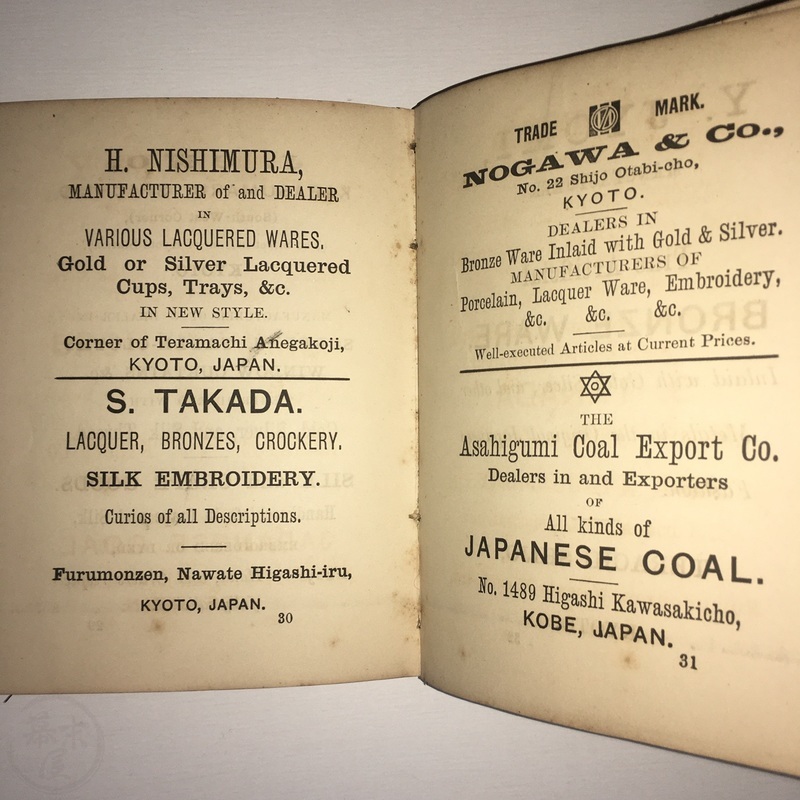 H. NISHIMURA,
MANUFACTURER of and DEALER
IN
VARIOUS LACQUERED WARES,
Gold or Silver Lacquered
Cups, Trays, &c.
IN NEW STYLE.
Corner of Teramachi Anegakoji,
KYOTO, JAPAN.
S. TAKADA.
LACQUER, BRONZES, CROCKERY.
SILK EMBROIDERY.
Curios of all Descriptions.
Furumonzen, Nawate Higashi-iru,
KYOTO, JAPAN.
30
TRADE MARK.
NOGAWA & Co.,
No. 22 Shijo Otabi-cho,
KYOTO.
DEALERS IN
Bronze Ware Inlaid with Gold & Silver.
MANUFACTURERS OF
Porcelain, Lacquer Ware, Embroidery,
&c. &c. &c.
Well-executed Articles at Current Prices.
THE
Asahigumi Coal Export Co.
Dealers in and Exporters
OF
All kinds of
JAPANESE COAL.
No. 1489 Higashi Kawasakicho,
KOBE, JAPAN.
31